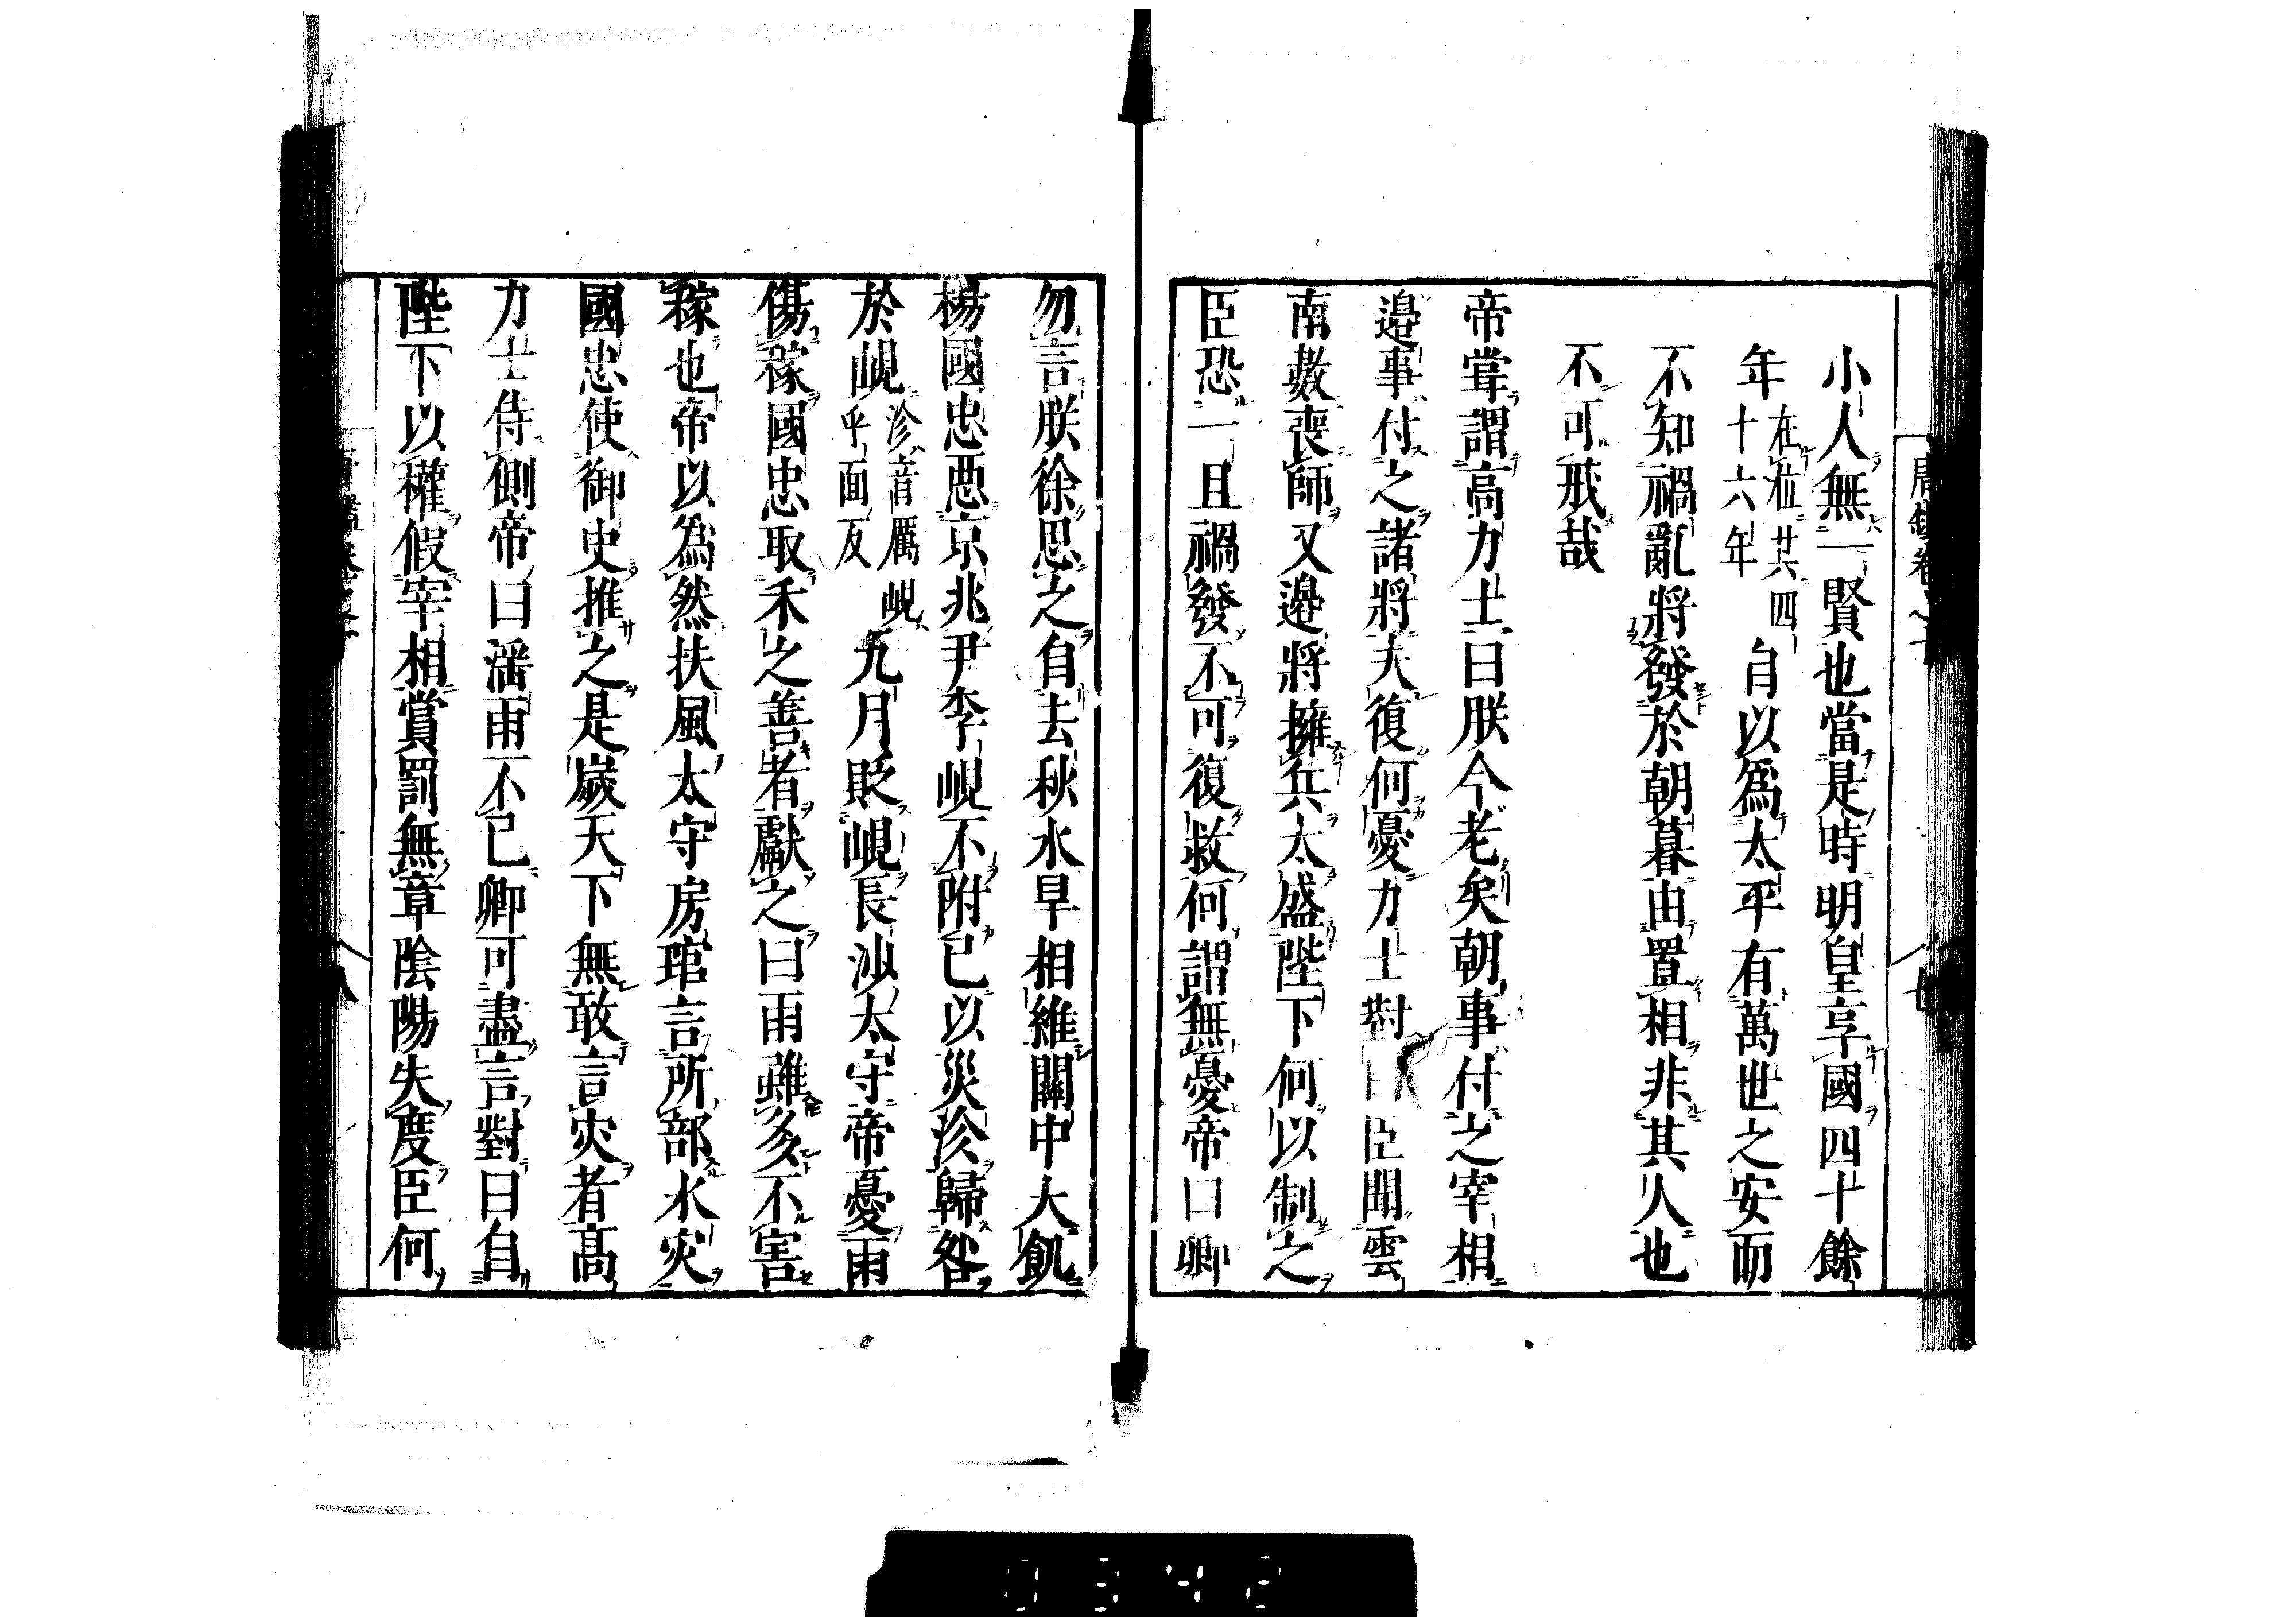 小人無一賢也當是時明皇享國四十餘
年在位共四十六年自以爲太平有萬世之安而
不知禍亂將發於朝暮由置相非其人也
不可戒哉
帝甞謂高力士曰朕今老矣朝事付之宰相
邉事付之諸將夫復何憂力士對曰臣聞雲
南數喪師又邉將擁兵太盛陛下何以制之
臣恐一旦禍發不可復救何謂無憂帝曰卿
勿言朕徐思之自去秋水旱相繼關中大飢
楊國忠惡京兆尹李峴不附已以災沴歸咎
於峴沴音厲峴乎面反九月貶峴長沙太守帝憂雨
傷稼國忠取禾之善者獻之曰雨雖多不害
稼也帝以為然扶風太守房琯言所部水灾
國忠使御史推之是歲天下無敢言灾者高
力士侍側帝曰滛雨不已卿可盡言對曰自
陛下以權假宰相賞罰無章陰陽失度臣何
0342